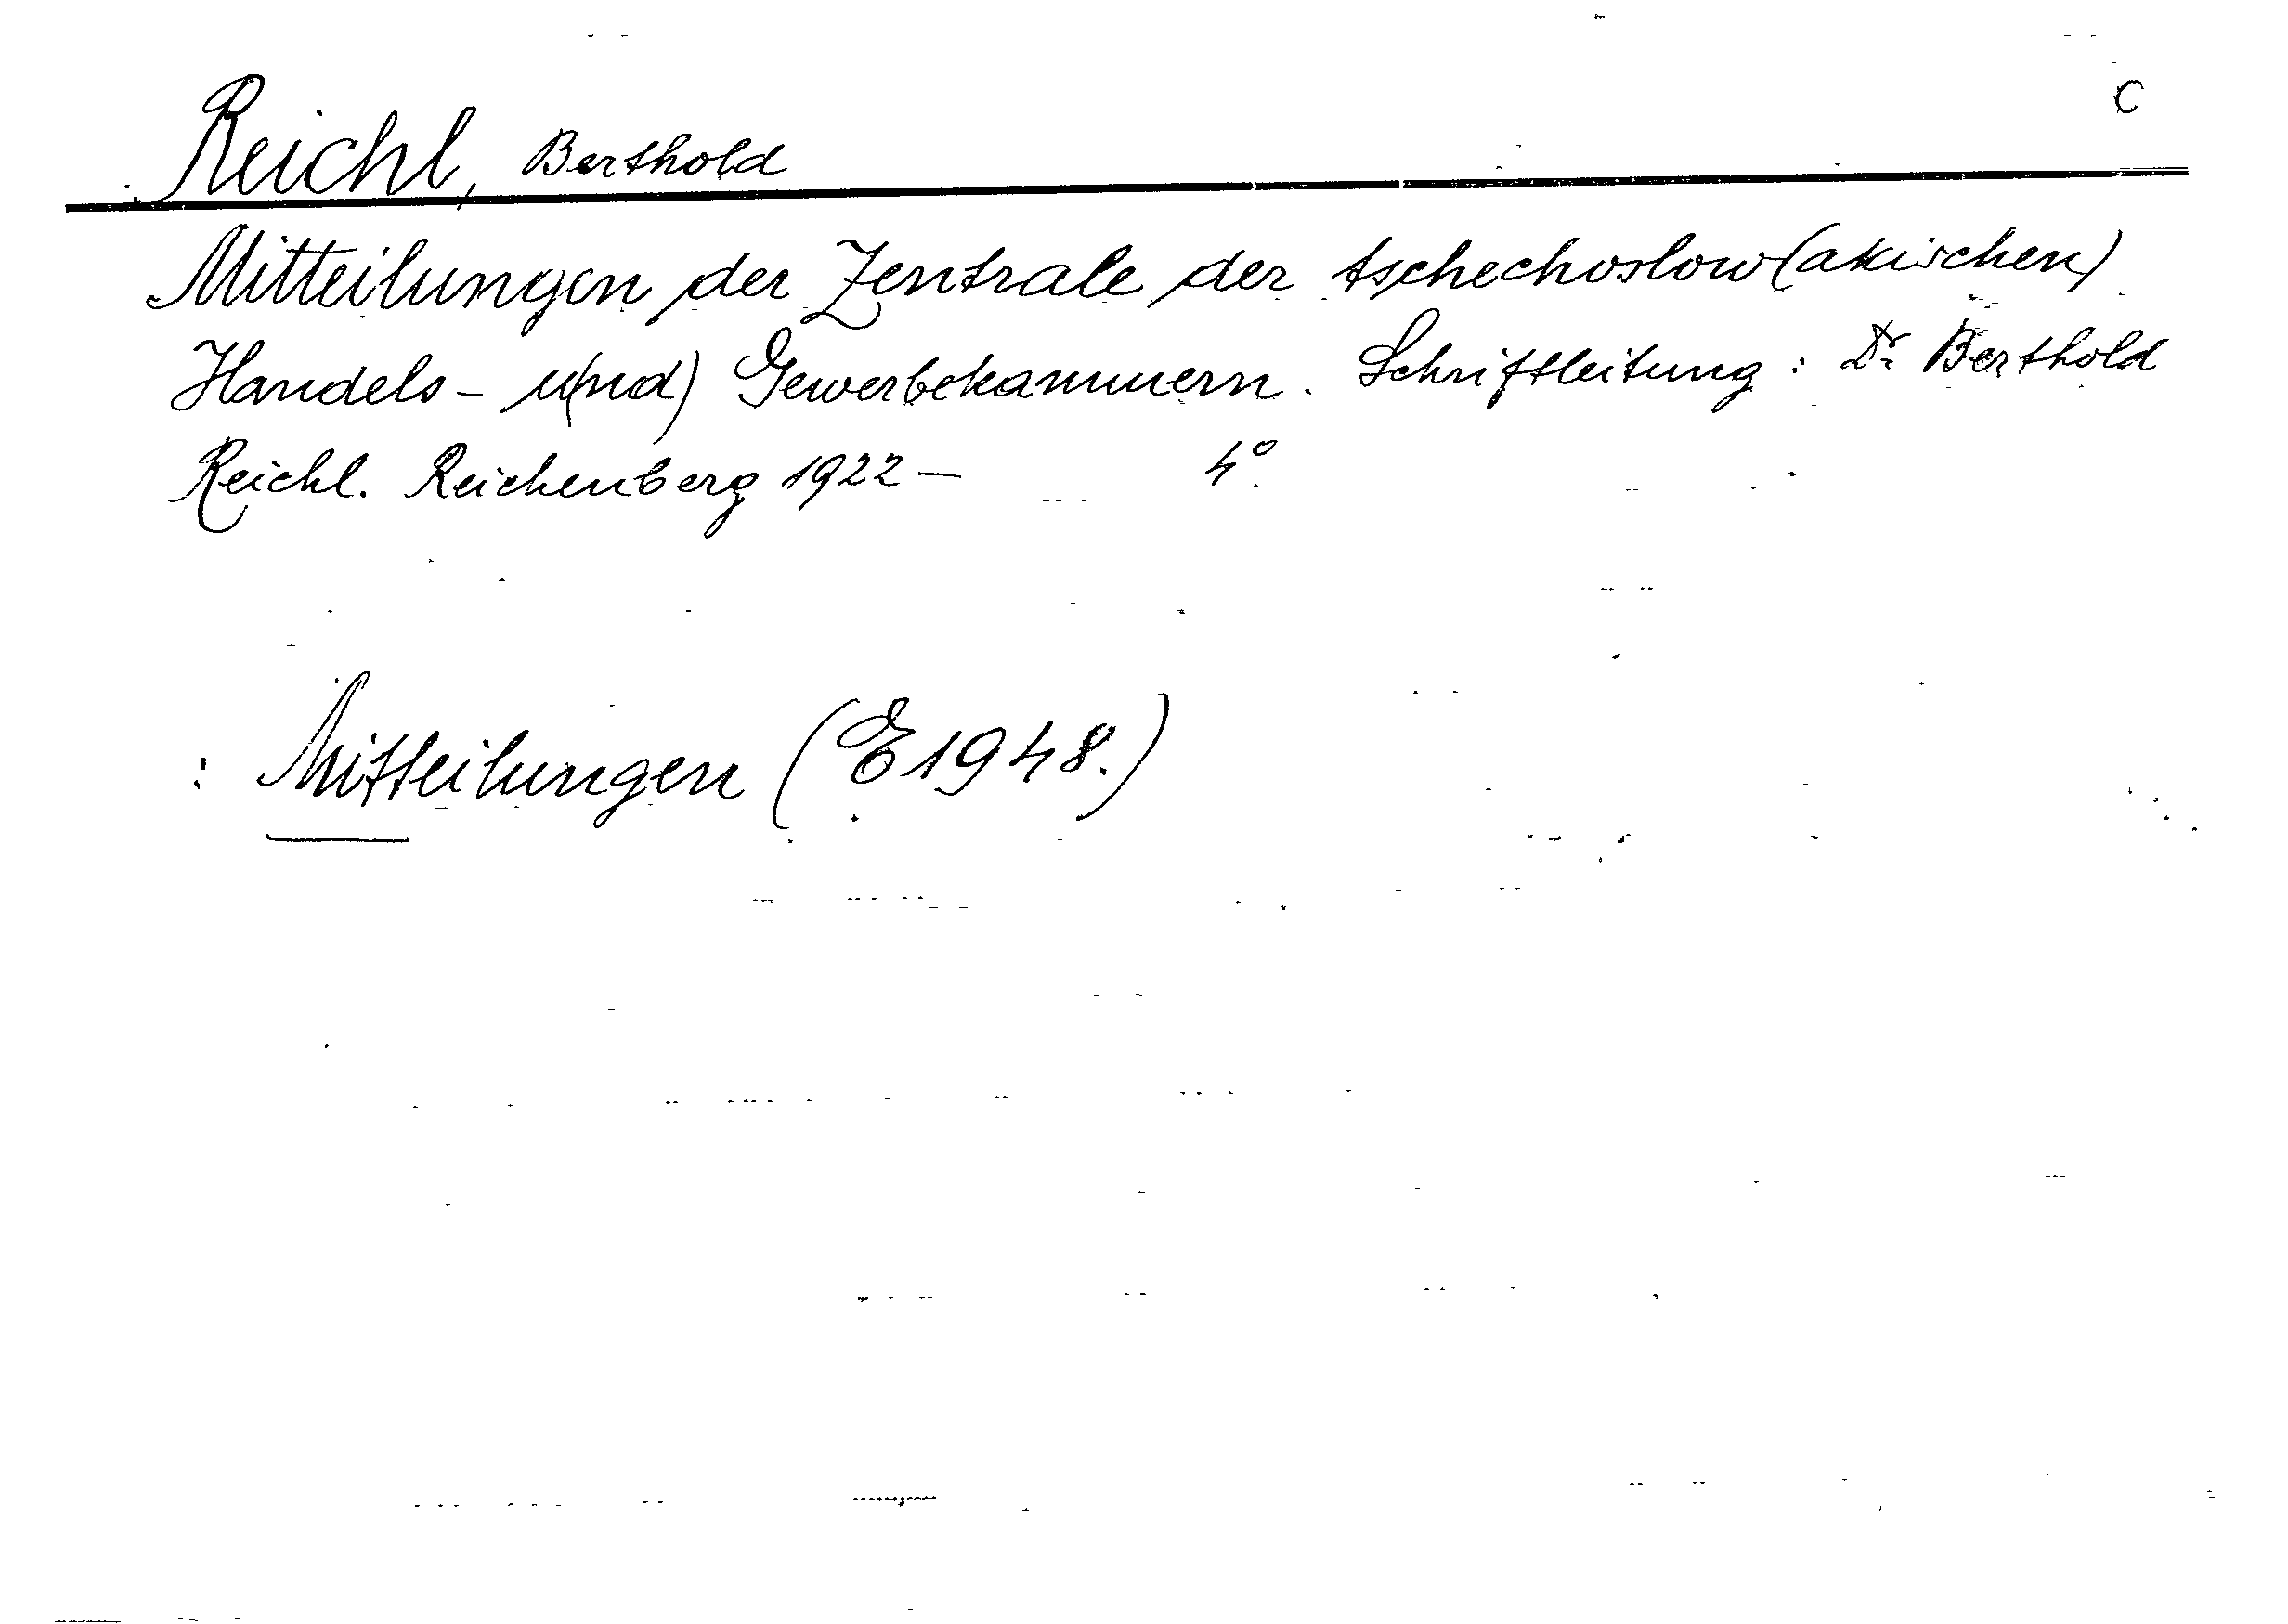 C
Reichl, Berthold
Mitteilungen der Zentrale der tschechoslow(akischen)
Handels- u(nd) Gewerbekammern. Schriftleitung: Dr. Berthold
Reichl. Reichenberg 1922 — 4°.
: Mitteilungen (E1948.)